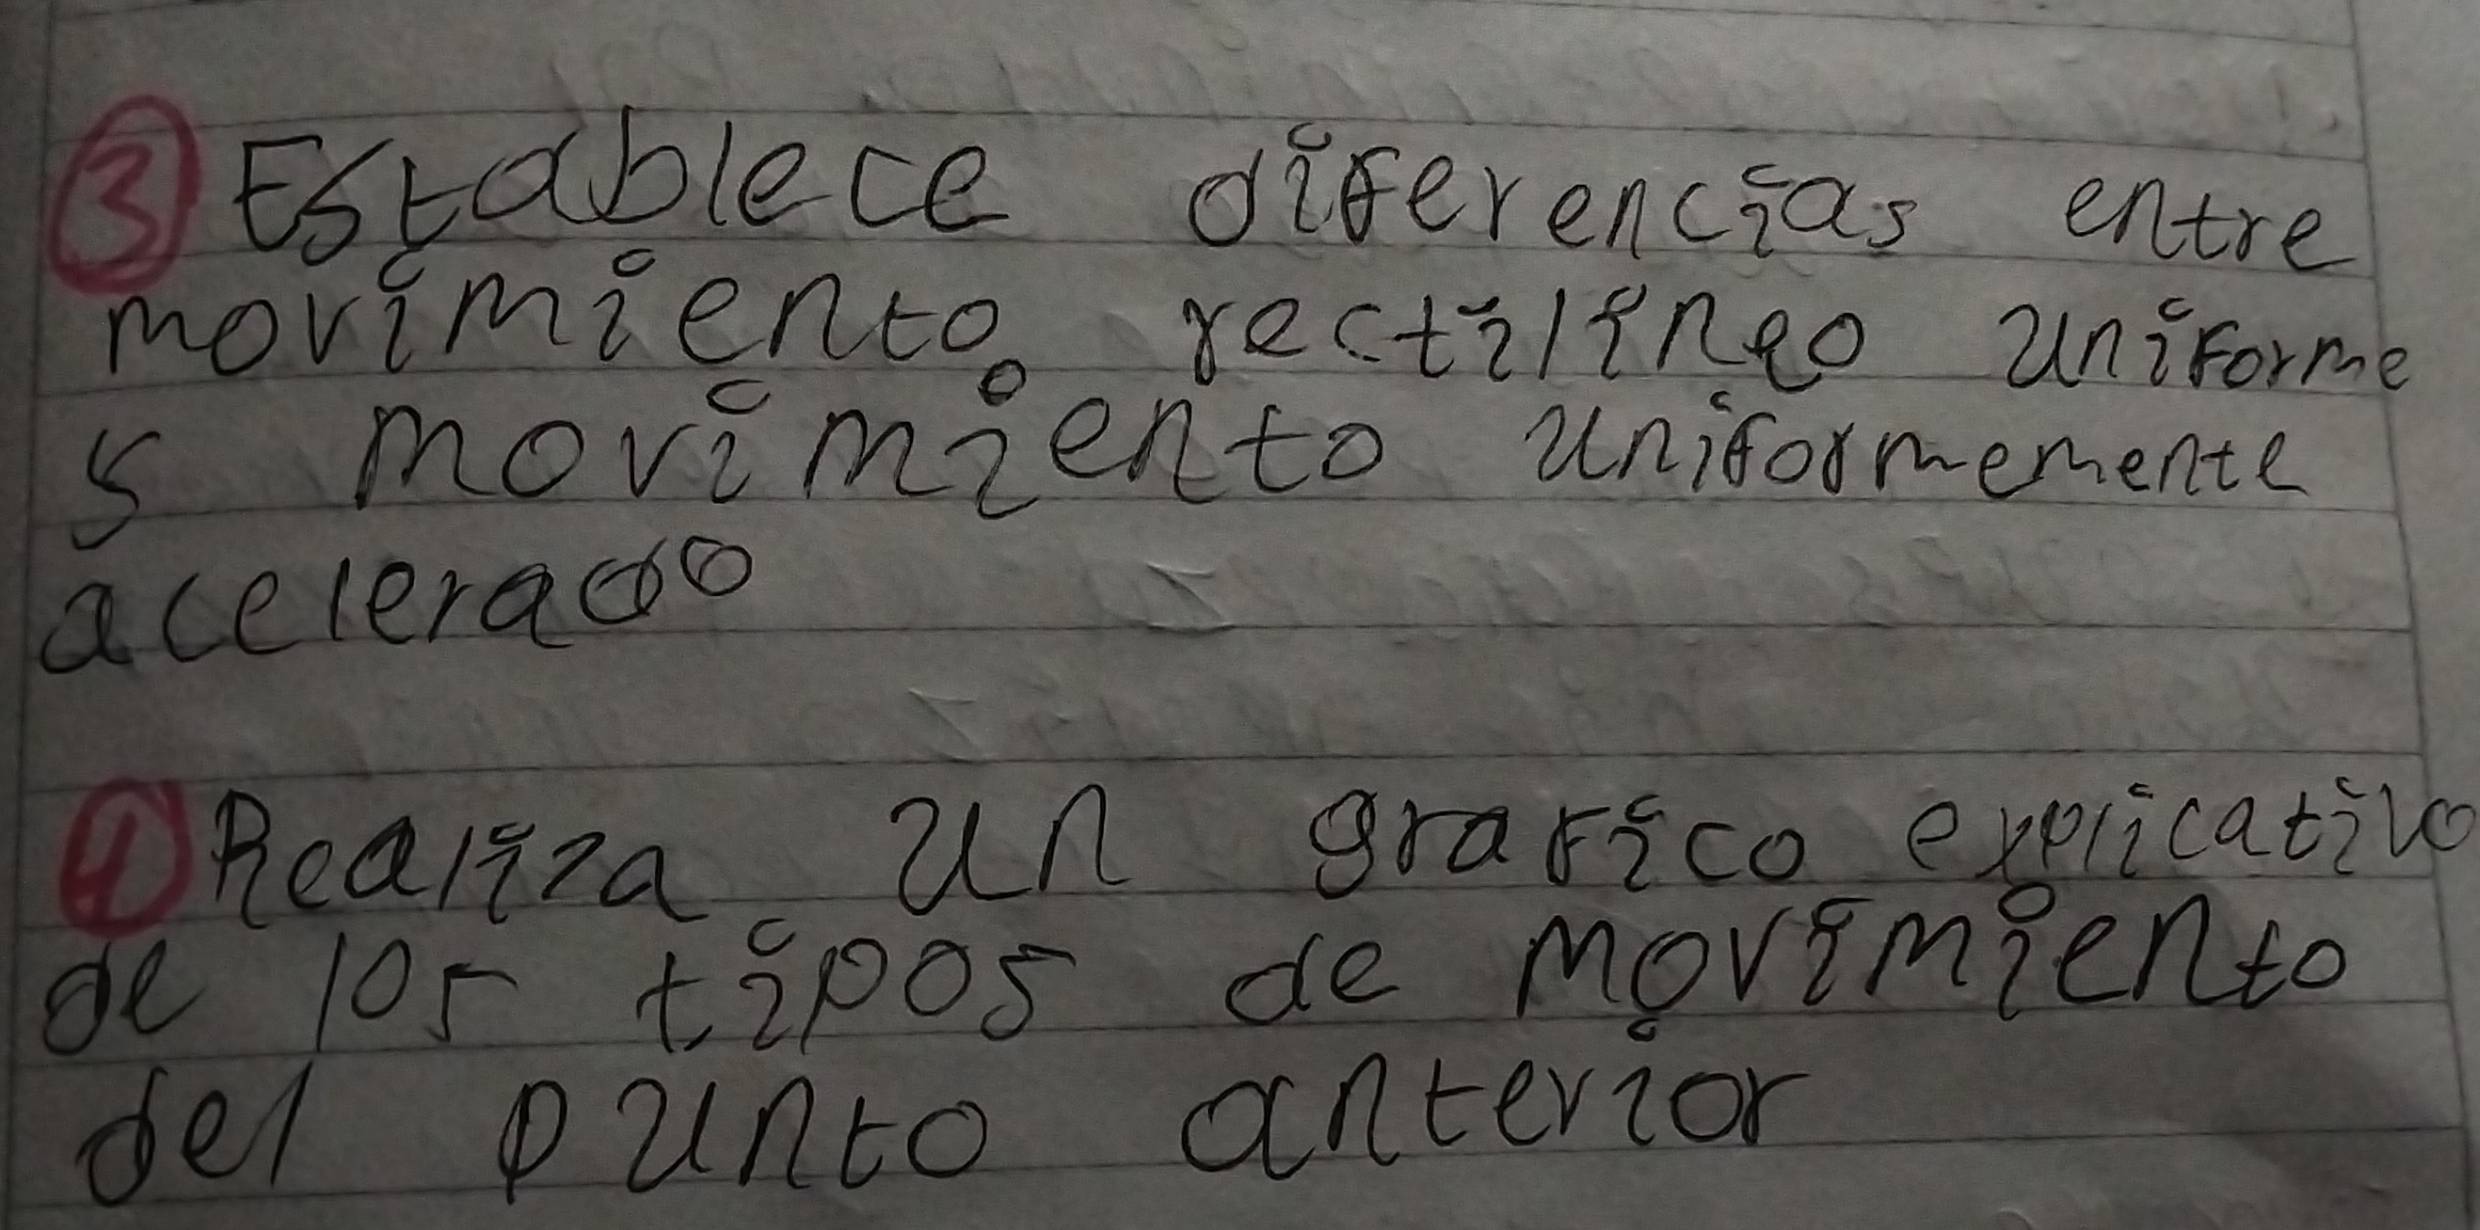 ③ Establece diferencias entre
movimiento rectilíneo uniforme
y movimiento uniformemente
acelerado
④ Realiza un grafico explicativo
de los tipos de movimiento
del punto anterior